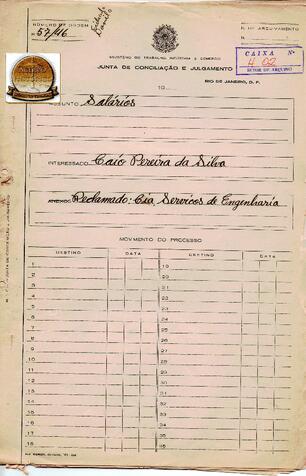 NUMERO DE ORDEM
57/46
Nº DE ARQUIVAMENTO
N.
CAIXA Nº
402
SETOR DE ARQUIVO
MINISTERIO DO TRABALHO INDUSTRIA E COMERCIO
JUNTA DE CONCILIAÇÃO E JULGAMENTO
RIO DE JANEIRO, D. F.
19
ASSUNTO Salários
INTERESSADO Caio Pereira da Silva
ANEXOS Reclamado: Cia, Servicos de Engenharia
MOVIMENTO DO PROCESSO
DESTINO DATA DESTINO DATA
1 19
2 20
3 21
4 22
5 23
6 24
7 25
8 26
9 27
10 28
11 29
12 30
13 31
14 32
15 33
16 34
17 35
18 36